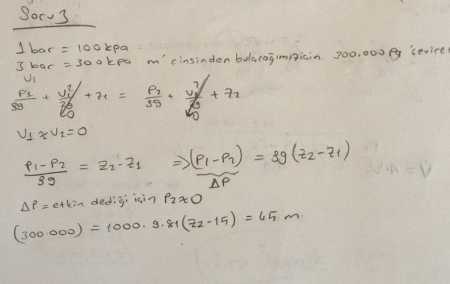 Soru 3
1 bar = 100 kpa
3 bar = 300 kpa m' cinsinden bulacağımız için 300.000 Pa çevirer
V1
P1/ρg + V1²/2g + z1 = P2/ρg + V2²/2g + z2
0 0
V1 ≈ V2 = 0
P1-P2/ρg = z2-z1 ⇒ (P1-P2) = ρg(z2-z1)
ΔP
ΔP = etkin dediği için P2 ≈ 0
(300.000) = 1000.9.81(z2-15) = 45 m